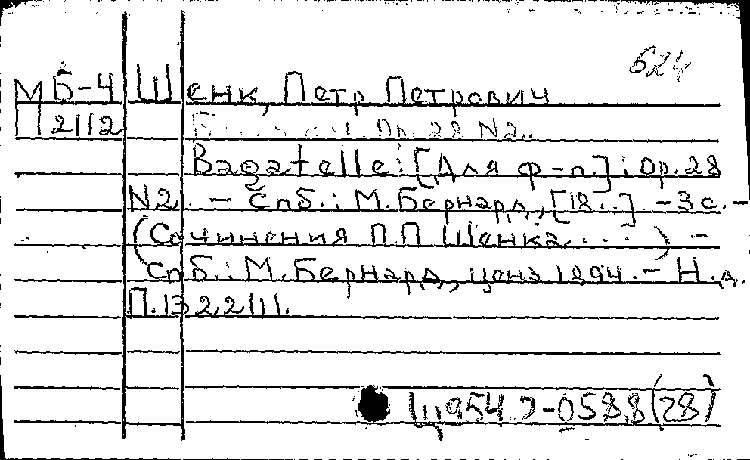 624
М Б-4 Шенк, Петр Петрович
П 2112 Op. 28 N2.
Bagatelle: [Для ф-п.]: Op. 28
N2. - Спб.: М. Бернард, [18..] - 3 с. -
(Сочинения П.П. Шенка....) -
Спб.: М. Бернард, ценз. 1894. - Н.д.
П. 13 22111.
Щ954.2-058.8(28)